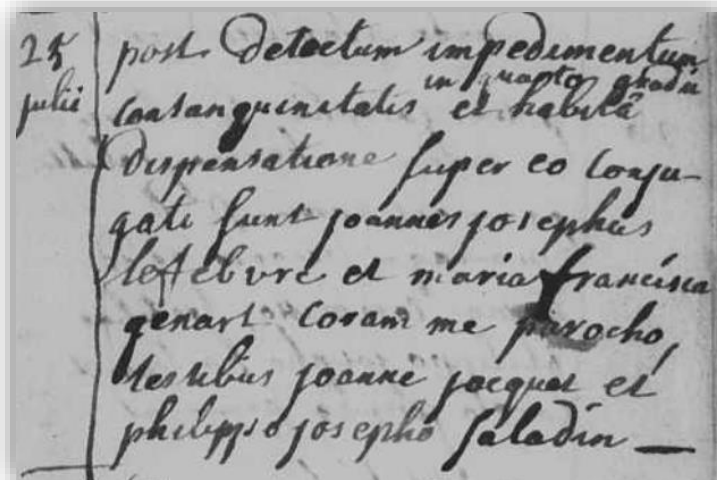 25 post detectum impedimentum
in quarto gradu
julii consanguinitatis et habitâ
dispensatione super eo conju-
gati sunt joannes josephus
lefebvre et maria francisca
genart coram me parocho,
testibus joanne jacquet et
philippo josepho saladin —